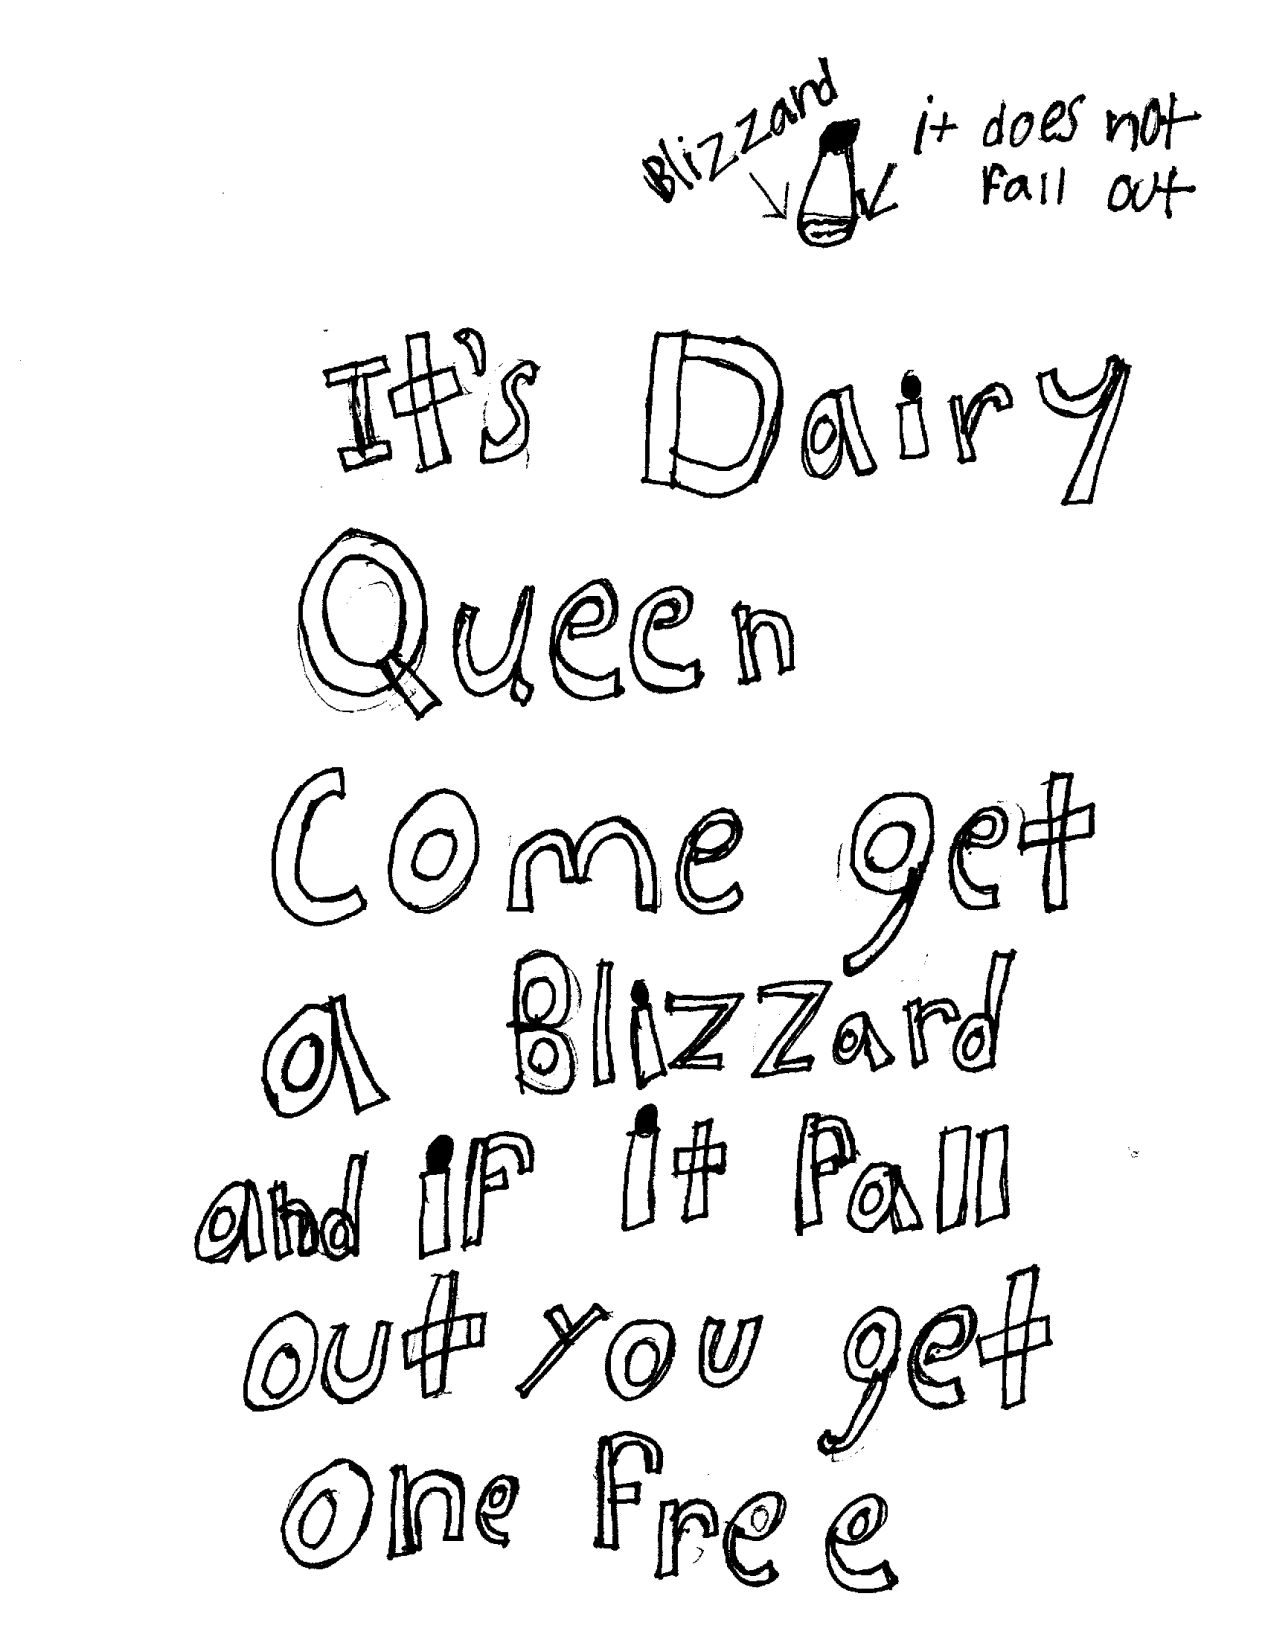 Blizzard
it does not
fall out
It's Dairy
Queen
Come get
a Blizzard
and if it fall
out you get
one free